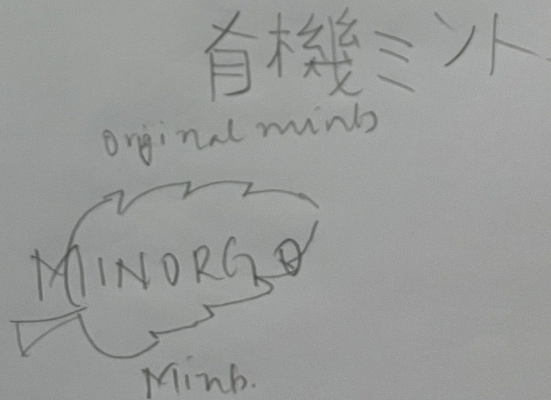 有機ミント
orijinal minb
MINORGO
Minb.